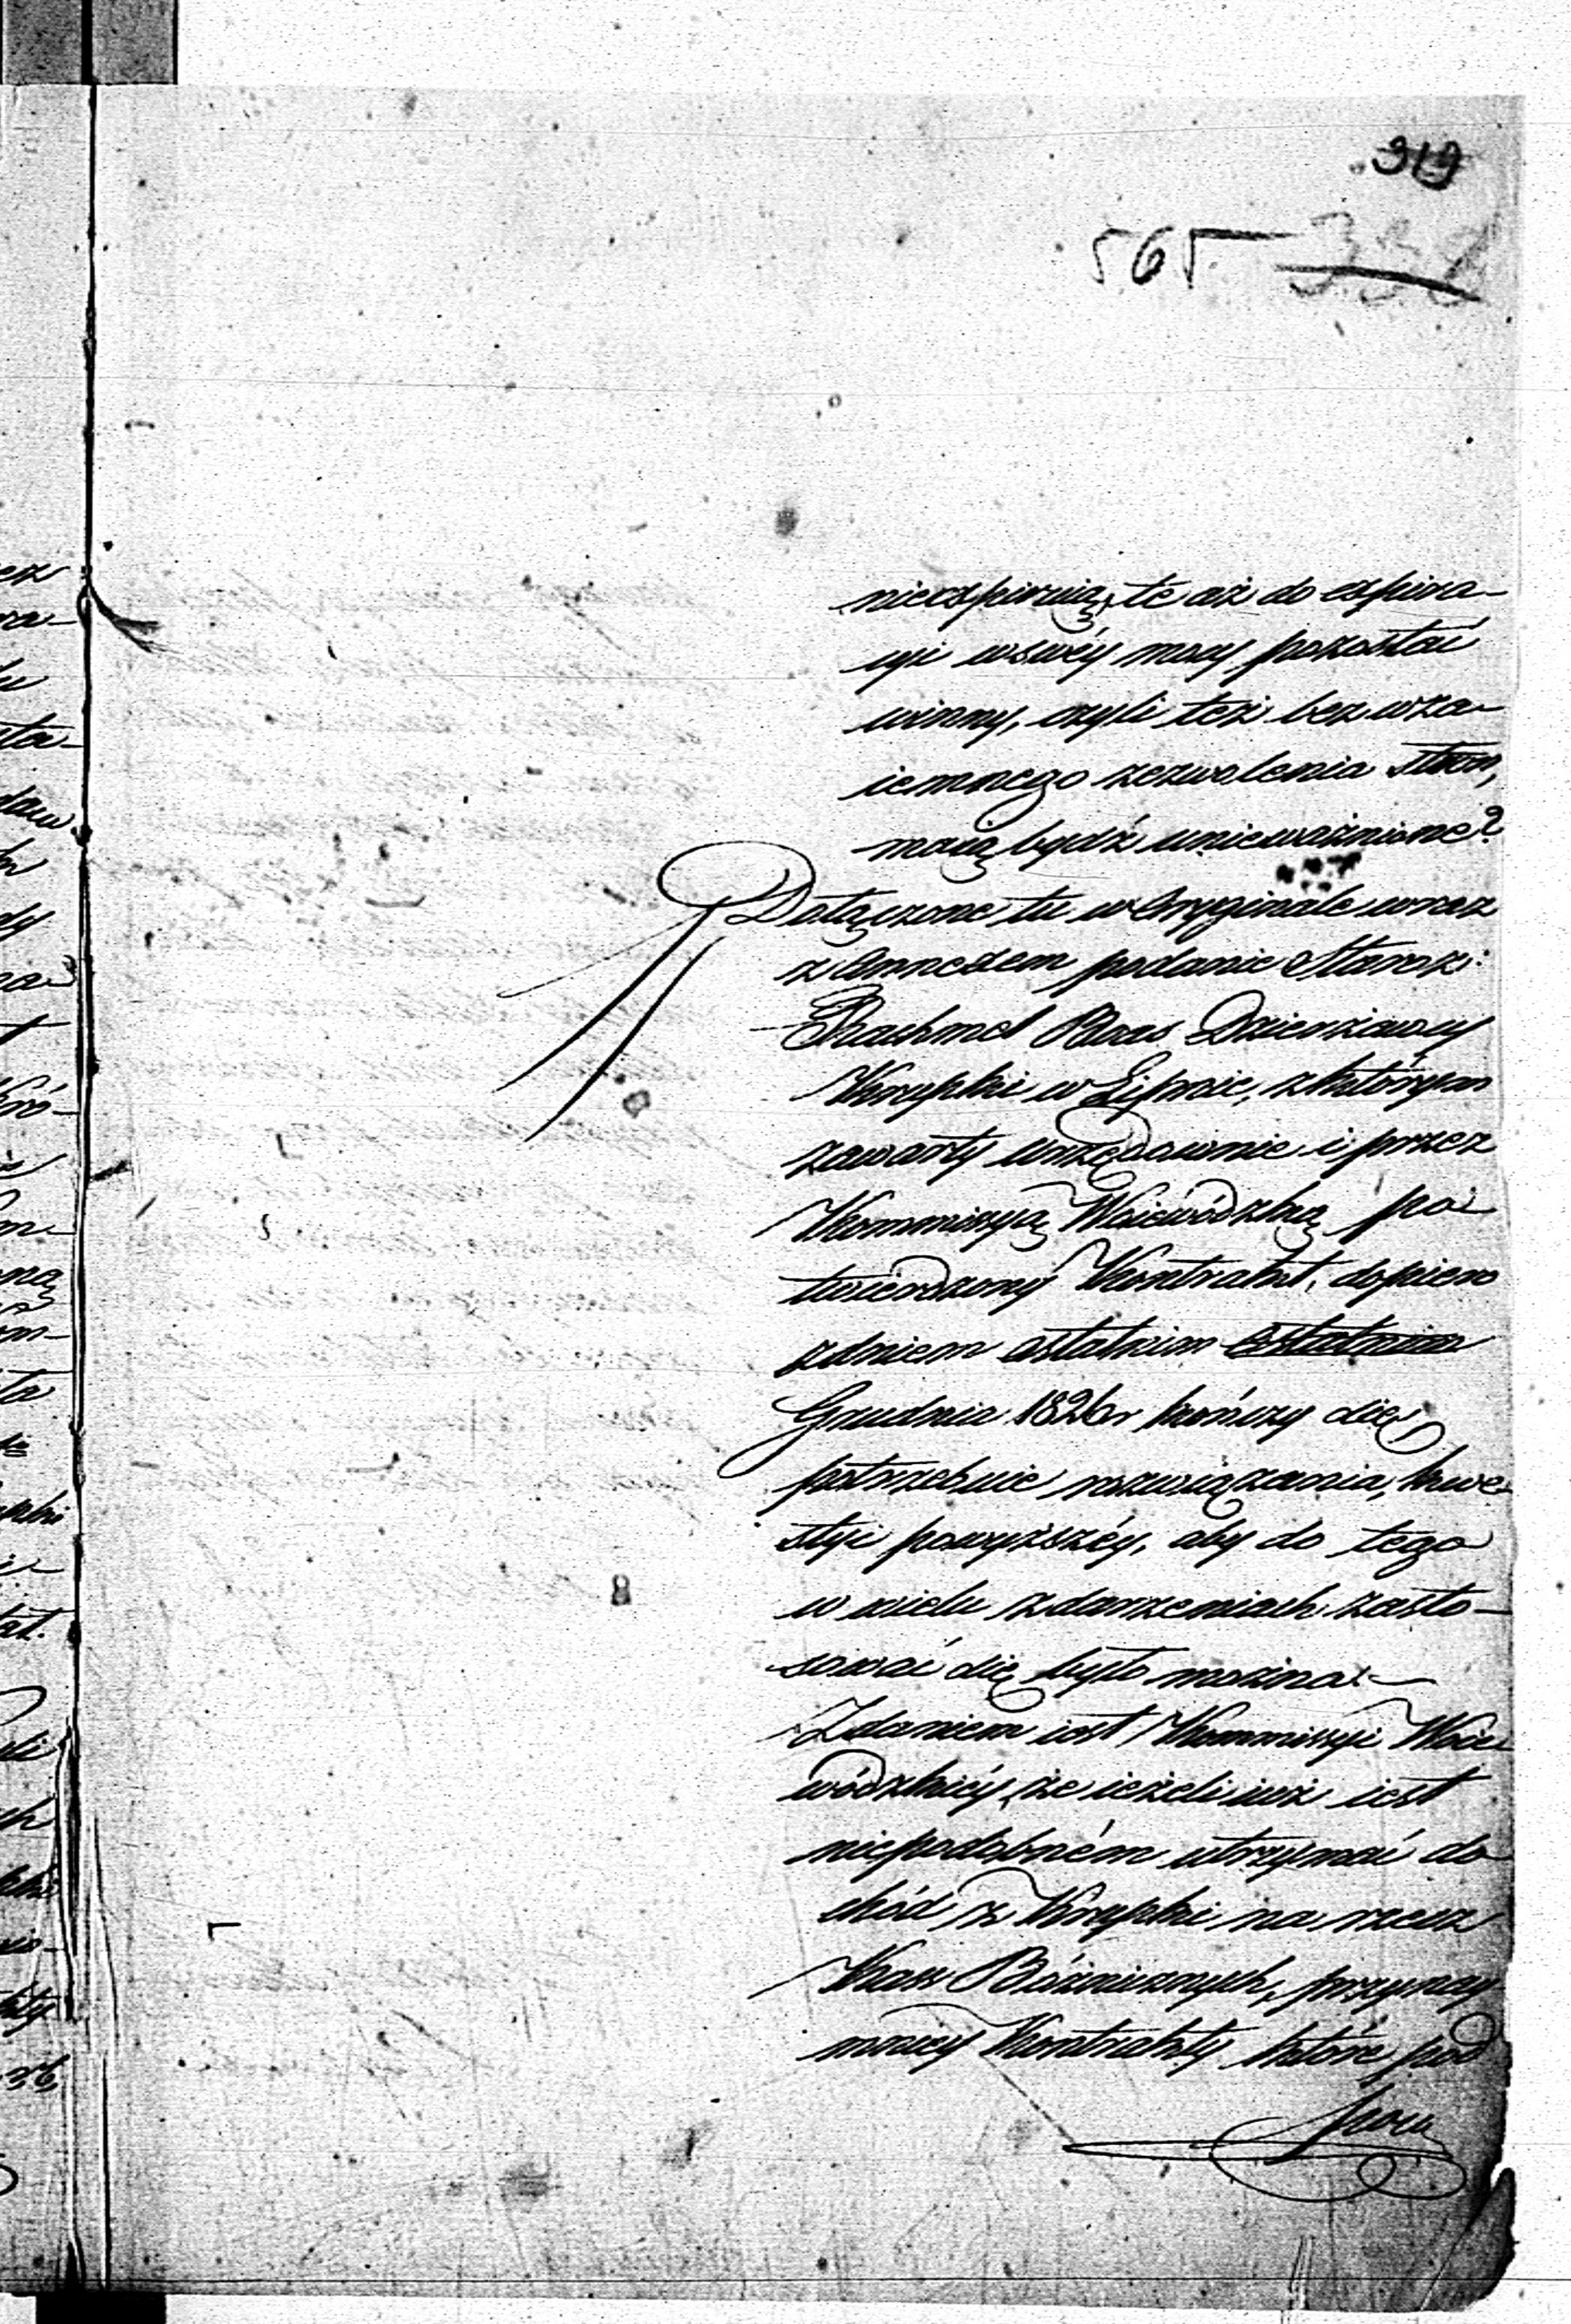 319
565 338
nieexpiruią, te aż do expira-
cyi w swéy mocy pozostać
winny, czyli też bez wza-
iemnego zezwolenia stron,
maią bydź unieważnione?
Dołączone tu w Oryginale wraz
z Annexem podanie Staroz:
Boas Dzierżawcy
Krupki w Lipnie, z którym
zawarty urzędownie i przez
Kommissyą Woiewódzką po-
twierdzony Kontrakt, dopiero
z dniem ostatnim ostatnim
Grudnia 1826r kończy się,
potrzebuie rozwiązania, kwe-
styi powyższéy, aby do tego
w wielu zdarzeniach zasto-
sować się było można.-
Zdaniem iest Kommissyi Woie-
wódzkiéy, że ieżeli iuż iest
niepodobném utrzymać do-
chód z Krupki na rzecz
Kass Bóżniczych, przynay-
mniey Kontrakty które pod